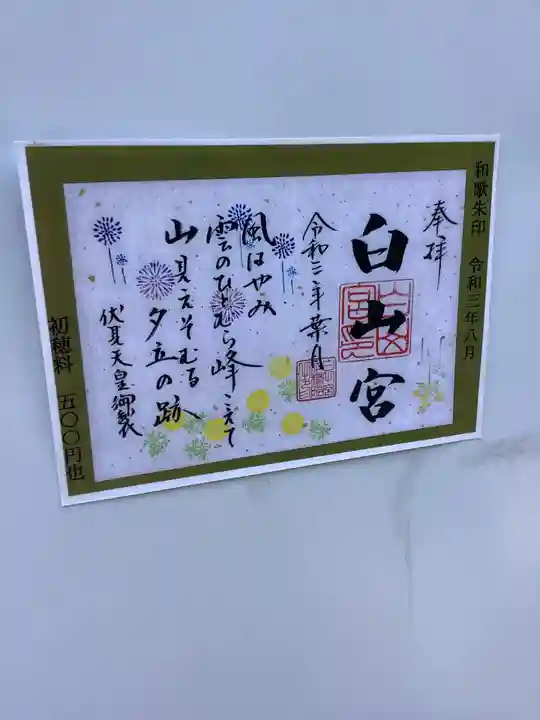 和歌朱印 令和三年八月
奉拝
白山宮
令和三年葉月
風はやみ
雲のひとむら峰こえて
山見えそむる
夕立の跡
伏見天皇御製
初穂料 五〇〇円也